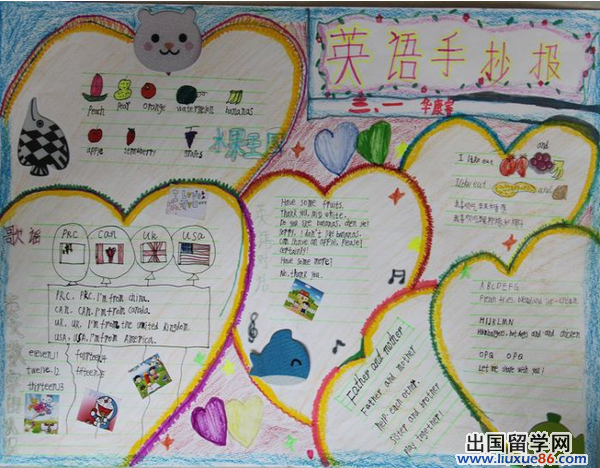 英语手抄报
三、一 华康睿
peach pear orange watermelon bananas
apple strawberry grapes
水果王国
I like eat and
I like eat and
歌谣
PRC Can UK USA
PRC. PRC. I'm from China.
CAN. CAN. I'm from Canada.
UK. UK. I'm from the United Kingdom.
USA. USA. I'm from America.
eleven.11 fourteen.14
twelve.12 fifteen.15
thirteen.13
Have some fruits.
Thank you, miss white.
Do you like bananas, chen jie?
Sorry, I don't like bananas.
Can I have an apple, please?
Certainly!
Have some more?
No, thank you.
Father and mother
Father and mother
help each other
Sister and brother
play together!
ABCDEFG
HIJKLMN
Hamburgers, hot dogs and chicken
OPQ OPQ
Let me share with you!
出国留学网
www.liuxue86.com